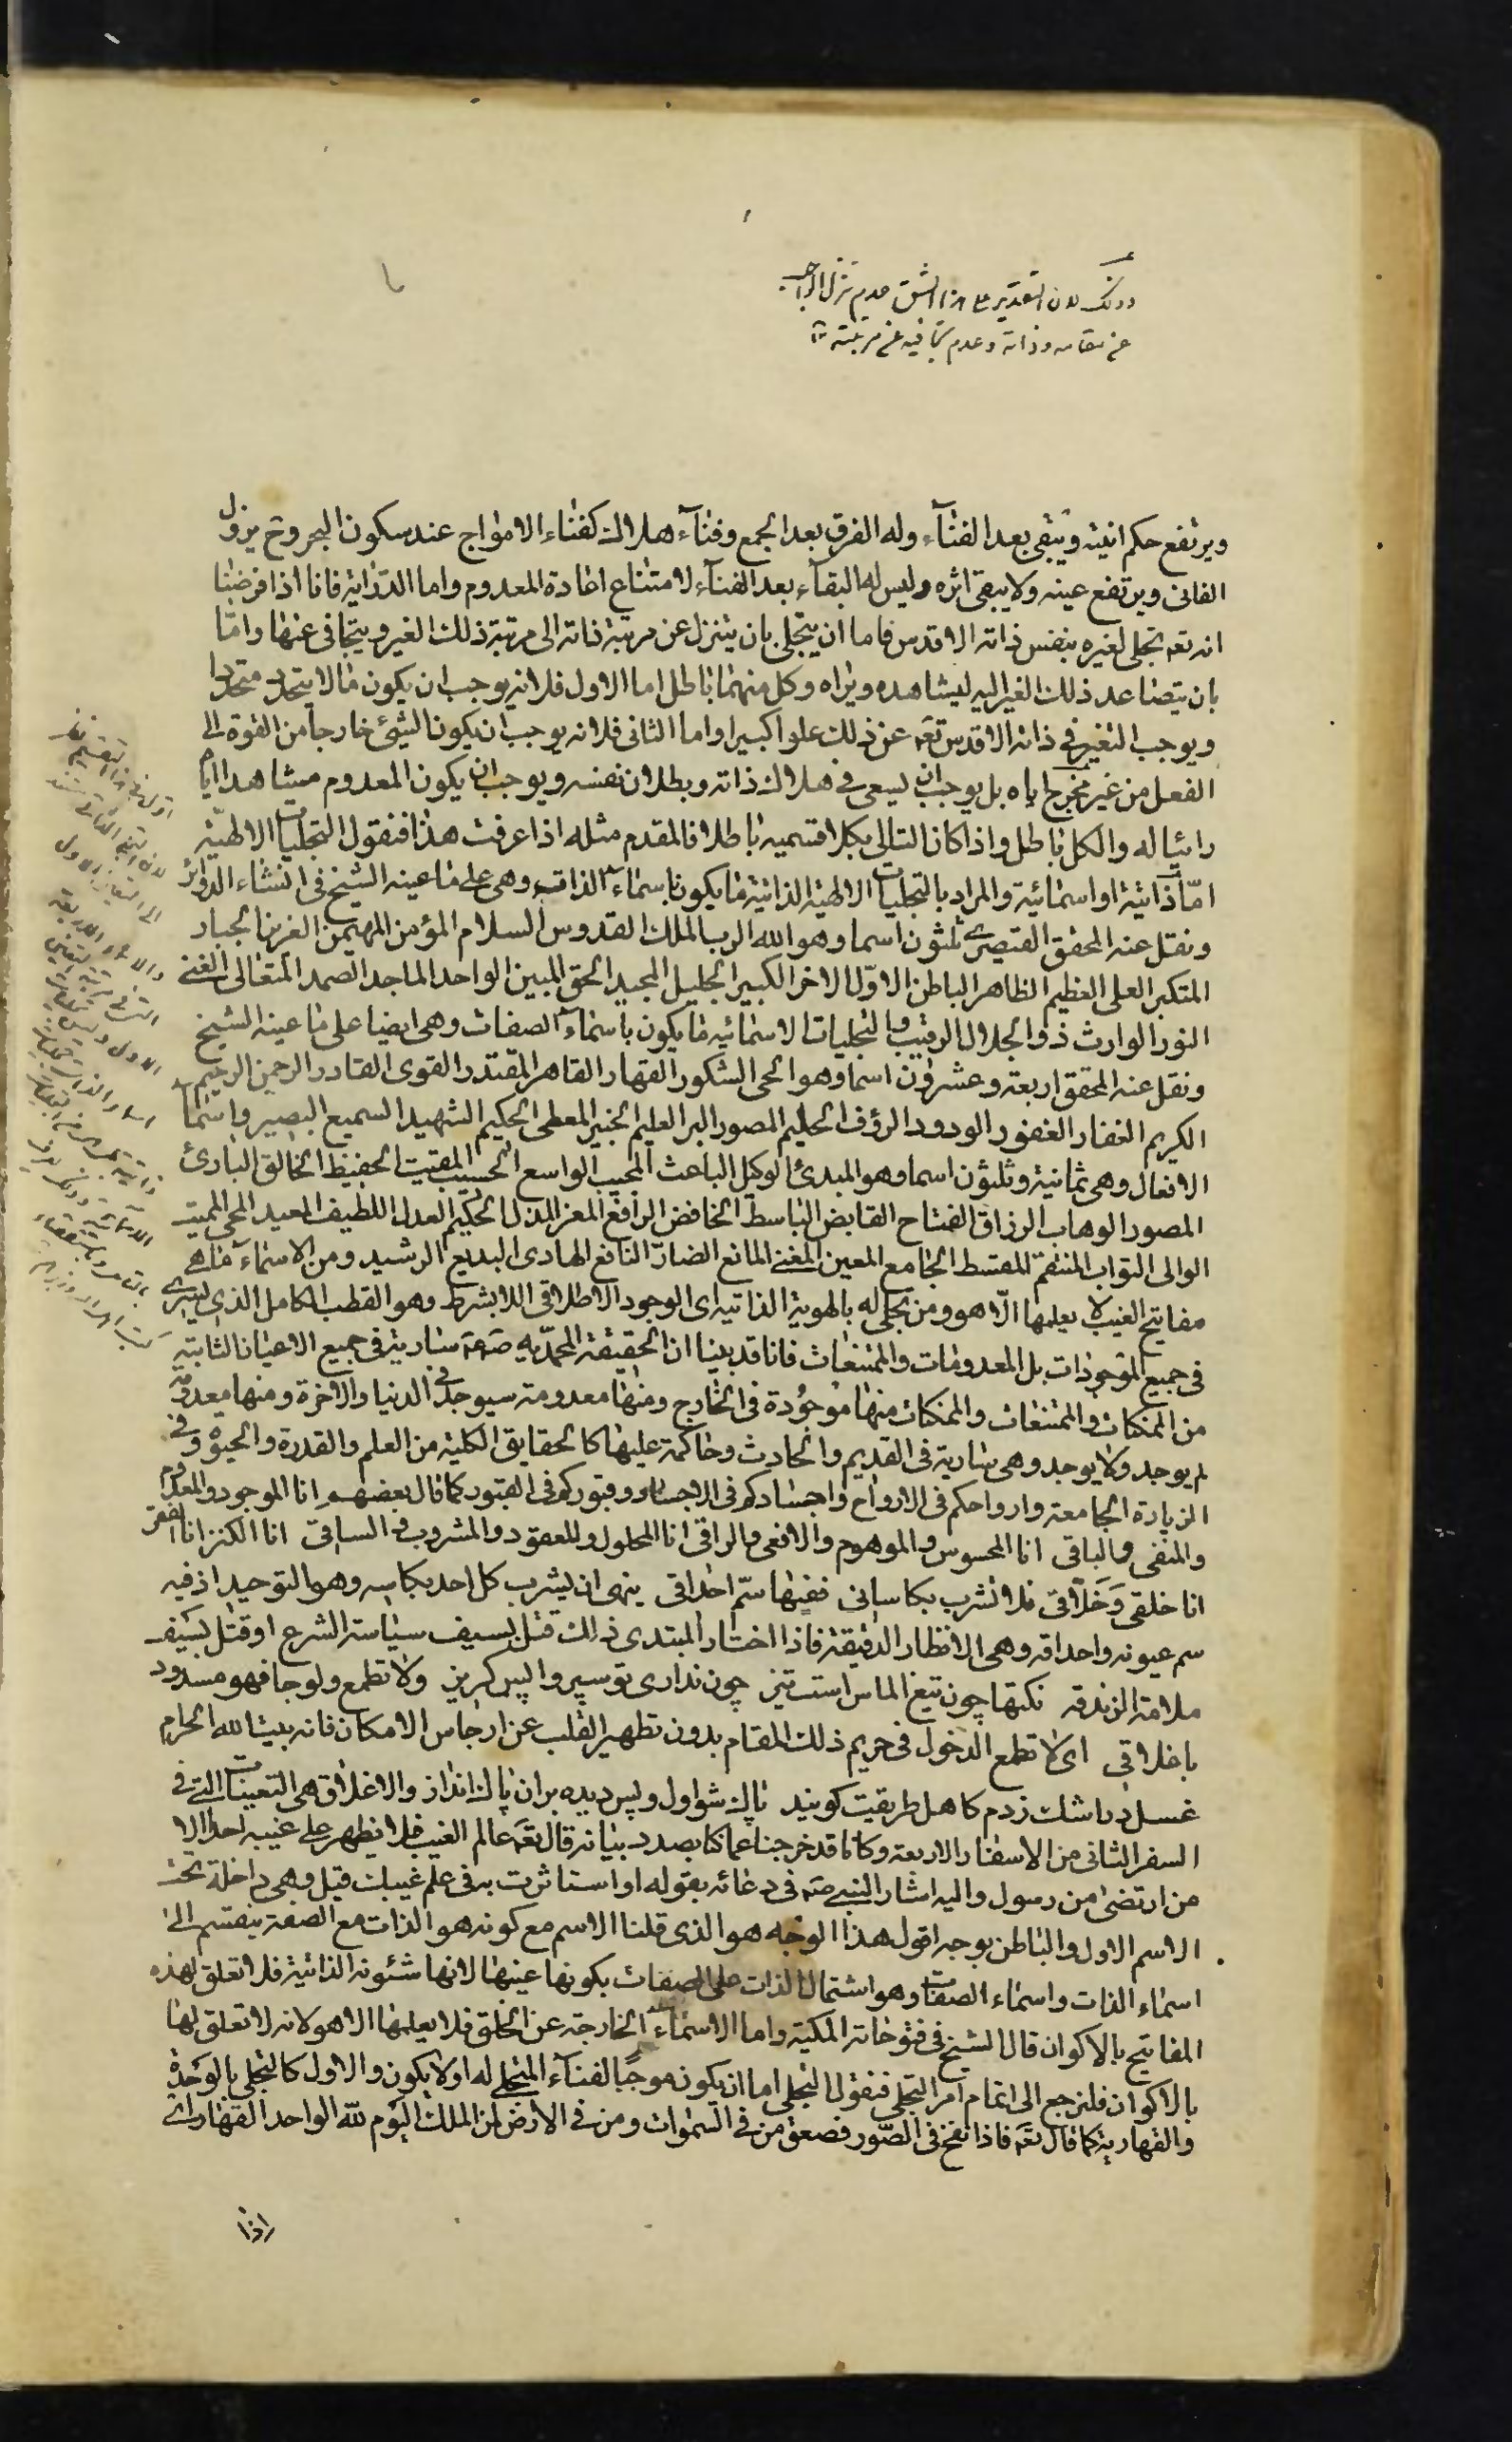 وذلك لان التقدير على هذا الشق عدم تنزل الواجب
عن مقامه وذاته وعدم تجافيه عن مرتبته
ويرتفع حكم انيته ويبقى بعد الفناء وله الفرق بعد الجمع وفناء هلاك كفناء الامواج عند سكون البحر وح يزول
الفانى ويرتفع عينه ولا يبقى اثره وليس له البقاء بعد الفناء لامتناع اعادة المعدوم واما الدراية فانا اذا فرضنا
انه تعه تجلى لغيره بنفس ذاته الاقدس فاما ان يتجلى بان يتنزل عن مرتبة ذاته الى مرتبة ذلك الغير ويتجافى عنها واما
بان يتصاعد ذلك الغير اليه ليشاهده ويراه وكل منهما باطل اما الاول فلانه يوجب ان يكون ما لا يتجدد متجددا
ويوجب التغير فى ذاته الاقدس تعه عن ذلك علوا كبيرا واما الثانى فلانه يوجب ان يكون الشئ خارجا من القوة الى
الفعل من غير مخرج اياه بل يوجب ان يسعى فى هلاك ذاته وبطلان نفسه ويوجب ان يكون المعدوم مشاهدا اياه
رائيا له والكل باطل واذا كان التالى بكلا قسميه باطلا فالمقدم مثله اذا عرفت هذا فنقول التجليات الالهية
اما ذاتية او اسمائية والمراد بالتجليات الالهية الذاتية ما يكون باسماء الذات وهى على ما عينه الشيخ فى انشاء الدوائر
ونقل عنه المحقق القيصرى ثلثون اسما وهو الله الرب الملك القدوس السلام المؤمن المهيمن العزيز الجبار
المتكبر العلى العظيم الظاهر الباطن الاول الاخر الكبير الجليل المجيد الحق المبين الواحد الماجد الصمد المتعالى الغنى
النور الوارث ذو الجلال الرقيب والتجليات الاسمائيه ما يكون باسماء الصفات وهى ايضا على ما عينه الشيخ
ونقل عنه المحقق اربعة وعشرون اسما وهو الحى الشكور القهار القاهر المقتدر القوى القادر الرحمن الرحيم
الكريم الغفار الغفور الودود الرؤف الحليم المصور البر العليم الخبير المعطى الحكيم الشهيد السميع البصير واسماء
الافعال وهى ثمانية وثلثون اسما وهو المبدئ الوكيل الباعث المجيب الواسع الحسيب المقيت الحفيظ الخالق البارئ
المصور الوهاب الرزاق الفتاح القابض الباسط الخافض الرافع المعز المذل الحكيم العدل اللطيف المعيد المحى المميت
الوالى التواب المنتقم المقسط الجامع المعين المغنى المانع الضار النافع الهادى البديع الرشيد ومن الاسماء ما هى
مفاتيح الغيب لا يعلمها الا هو ومن تجلى له بالهوية الذاتية اى الوجود الاطلاقى اللا بشرط وهو القطب الكامل الذى يسرى
فى جميع الموجودات بل المعدومات والممتنعات فانا قد بينا ان الحقيقة المحمديه صعه سارية فى جميع الاعيان الثابتة
من الممكنات والممتنعات والممكنات منها موجودة فى الخارج ومنها معدومة سيوجد فى الدنيا والاخرة ومنها معدومة
لم يوجد ولا يوجد وهى سارية فى القديم والحادث وحاكمة عليها كالحقايق الكلية من العلم والقدرة والحيوة وفى
الزيارة الجامعة وارواحكم فى الارواح واجسادكم فى الاجساد وقبوركم فى القبور كما قال بعضهم انا الموجود والمعدوم
والمنفى والباقى انا المحسوس والموهوم والافعى والراقى انا المحلول والمعقود والمشروب فى الساقى انا الكنز انا الفقر
انا خلقى وخلاقى فلا تشرب بكاساتى ففيها سم احداقى ينهى ان يشرب كل احد بكاسه وهو التوحيد اذ فيه
سم عيونه واحداقه وهى الانظار الدقيقة فاذا اختار المبتدى ذلك قتل بسيف سياسة الشرع او قتل بسيف
ملامة الزندقه نكتها چون تيغ الماس است تيز چون ندارى تو سپر واپس كريز ولا تطمع ولوجا فهو مسدود
باغلاقى اى لا تطمع الدخول فى حريم ذلك المقام بدون تطهير القلب عن ارجاس الامكان فانه بيت الله الحرام
غسل در اشك زدم كاهل طريقت كويند پاك شو اول وپس ديده بر ان پاك انداز والاغلاق هى التعينات التى فى
السفر الثانى من الاسفار الاربعة وكانا قد خرجنا عما كنا بصدد بيانه قال تعه عالم الغيب فلا يظهر على غيبه احدا الا
من ارتضى من رسول واليه اشار النبى صه فى دعائه بقوله او استاثرت به فى علم غيبك قيل وهى داخلة تحت
الاسم الاول والباطن بوجه اقول هذا الوجه هو الذى قلنا الاسم مع كونه هو الذات مع الصفة ينقسم الى
اسماء الذات واسماء الصفات وهو اشتمال الذات على الصفات بكونها عينها لانها شئونه الذاتية فلا تعلق لهذه
المفاتيح بالاكوان قال الشيخ فى فتوحاته المكية واما الاسماء الخارجة عن الخلق فلا يعلمها الا هو لانه لا تعلق لها
بالاكوان فلنرجع الى اتمام امر التجلى فنقول التجلى اما ان يكون موجبا لفناء المتجلى له او لا يكون والاول كالتجلى بالوحدة
والقهارية كما قال تعه فاذا نفخ فى الصور فصعق من فى السموات ومن فى الارض لمن الملك اليوم لله الواحد القهار اى
اذا